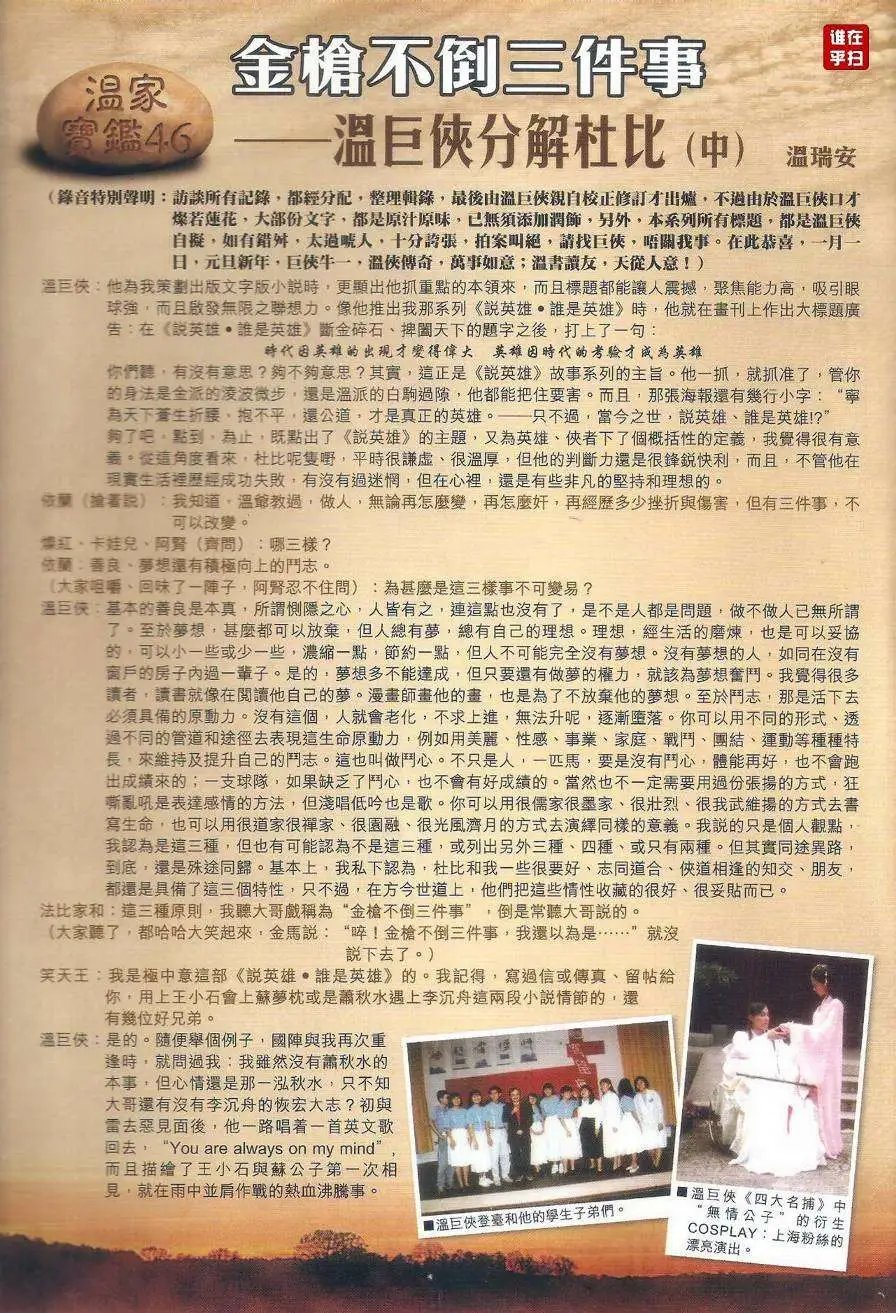 誰在
乎扫
溫家
寶鑑46
金槍不倒三件事
——溫巨俠分解杜比（中） 溫瑞安
（錄音特別聲明：訪談所有記錄，都經分配，整理輯錄，最後由溫巨俠親自校正修訂才出爐，不過由於溫巨俠口才
燦若蓮花，大部份文字，都是原汁原味，已無須添加潤飾，另外，本系列所有標題，都是溫巨俠
自擬，如有錯舛，太過唬人，十分誇張，拍案叫絕，請找巨俠，唔關我事。在此恭喜，一月一
日，元旦新年，巨俠牛一，溫俠傳奇，萬事如意；溫書讀友，天從人意！）
溫巨俠：他為我策劃出版文字版小說時，更顯出他抓重點的本領來，而且標題都能讓人震撼，聚焦能力高，吸引眼
球強，而且啟發無限之聯想力。像他推出我那系列《說英雄•誰是英雄》時，他就在畫刊上作出大標題廣
告：在《說英雄•誰是英雄》斷金碎石、捭闔天下的題字之後，打上了一句：
時代因英雄的出現才變得偉大　英雄因時代的考驗才成為英雄
你們聽，有沒有意思？夠不夠意思？其實，這正是《說英雄》故事系列的主旨。他一抓，就抓准了，管你
的身法是金派的凌波微步，還是溫派的白駒過隙，他都能把住要害。而且，那張海報還有幾行小字：“寧
為天下蒼生折腰、抱不平，還公道，才是真正的英雄。——只不過，當今之世，說英雄、誰是英雄!?”
夠了吧，點到，為止，既點出了《說英雄》的主題，又為英雄、俠者下了個概括性的定義，我覺得很有意
義。從這角度看來，杜比呢隻嘢，平時很謙虛、很溫厚，但他的判斷力還是很鋒銳快利，而且，不管他在
現實生活裡歷經成功失敗，有沒有過迷惘，但在心裡，還是有些非凡的堅持和理想的。
依蘭（搶著說）：我知道，溫爺教過，做人，無論再怎麼變，再怎麼奸，再經歷多少挫折與傷害，但有三件事，不
可以改變。
燦紅、卡娃兒、阿腎（齊問）：哪三樣？
依蘭：善良、夢想還有積極向上的鬥志。
（大家咀嚼、回味了一陣子，阿腎忍不住問）：為甚麼是這三樣事不可變易？
溫巨俠：基本的善良是本真，所謂惻隱之心，人皆有之，連這點也沒有了，是不是人都是問題，做不做人已無所謂
了。至於夢想，甚麼都可以放棄，但人總有夢，總有自己的理想。理想，經生活的磨煉，也是可以妥協
的，可以小一些或少一些，濃縮一點，節約一點，但人不可能完全沒有夢想。沒有夢想的人，如同在沒有
窗戶的房子內過一輩子。是的，夢想多不能達成，但只要還有做夢的權力，就該為夢想奮鬥。我覺得很多
讀者，讀書就像在閱讀他自己的夢。漫畫師畫他的畫，也是為了不放棄他的夢想。至於鬥志，那是活下去
必須具備的原動力。沒有這個，人就會老化，不求上進，無法升呢，逐漸墮落。你可以用不同的形式、透
過不同的管道和途徑去表現這生命原動力，例如用美麗、性感、事業、家庭、戰鬥、團結、運動等種種特
長，來維持及提升自己的鬥志。這也叫做鬥心。不只是人，一匹馬，要是沒有鬥心，體能再好，也不會跑
出成績來的；一支球隊，如果缺乏了鬥心，也不會有好成績的。當然也不一定需要用過份張揚的方式，狂
嘶亂吼是表達感情的方法，但淺唱低吟也是歌。你可以用很儒家很墨家、很壯烈、很我武維揚的方式去書
寫生命，也可以用很道家很禪家、很圓融、很光風濟月的方式去演繹同樣的意義。我說的只是個人觀點，
我認為是這三種，但也有可能認為不是這三種，或列出另外三種、四種、或只有兩種。但其實同途異路，
到底，還是殊途同歸。基本上，我私下認為，杜比和我一些很要好、志同道合、俠道相逢的知交、朋友，
都還是具備了這三個特性，只不過，在方今世道上，他們把這些情性收藏的很好、很妥貼而已。
法比家和：這三種原則，我聽大哥戲稱為“金槍不倒三件事”，倒是常聽大哥說的。
（大家聽了，都哈哈大笑起來，金馬說：“啐！金槍不倒三件事，我還以為是……”就沒
說下去了。）
笑天王：我是極中意這部《說英雄•誰是英雄》的。我記得，寫過信或傳真、留帖給
你，用上王小石會上蘇夢枕或是蕭秋水遇上李沉舟這兩段小說情節的，還
有幾位好兄弟。
溫巨俠：是的。隨便舉個例子，國陣與我再次重
逢時，就問過我：我雖然沒有蕭秋水的
本事，但心情還是那一泓秋水，只不知
大哥還有沒有李沉舟的恢宏大志？初與
雷去惡見面後，他一路唱着一首英文歌
回去，“You are always on my mind”，
而且描繪了王小石與蘇公子第一次相
見，就在雨中並肩作戰的熱血沸騰事。
■溫巨俠登臺和他的學生子弟們。
■溫巨俠《四大名捕》中
“無情公子”的衍生
COSPLAY：上海粉絲的
漂亮演出。